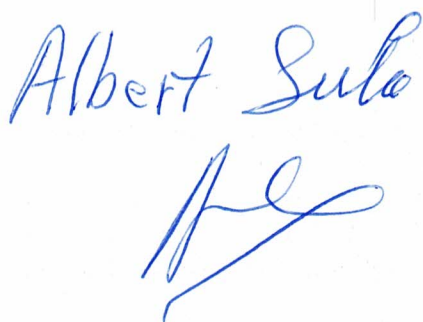 Albert Sula